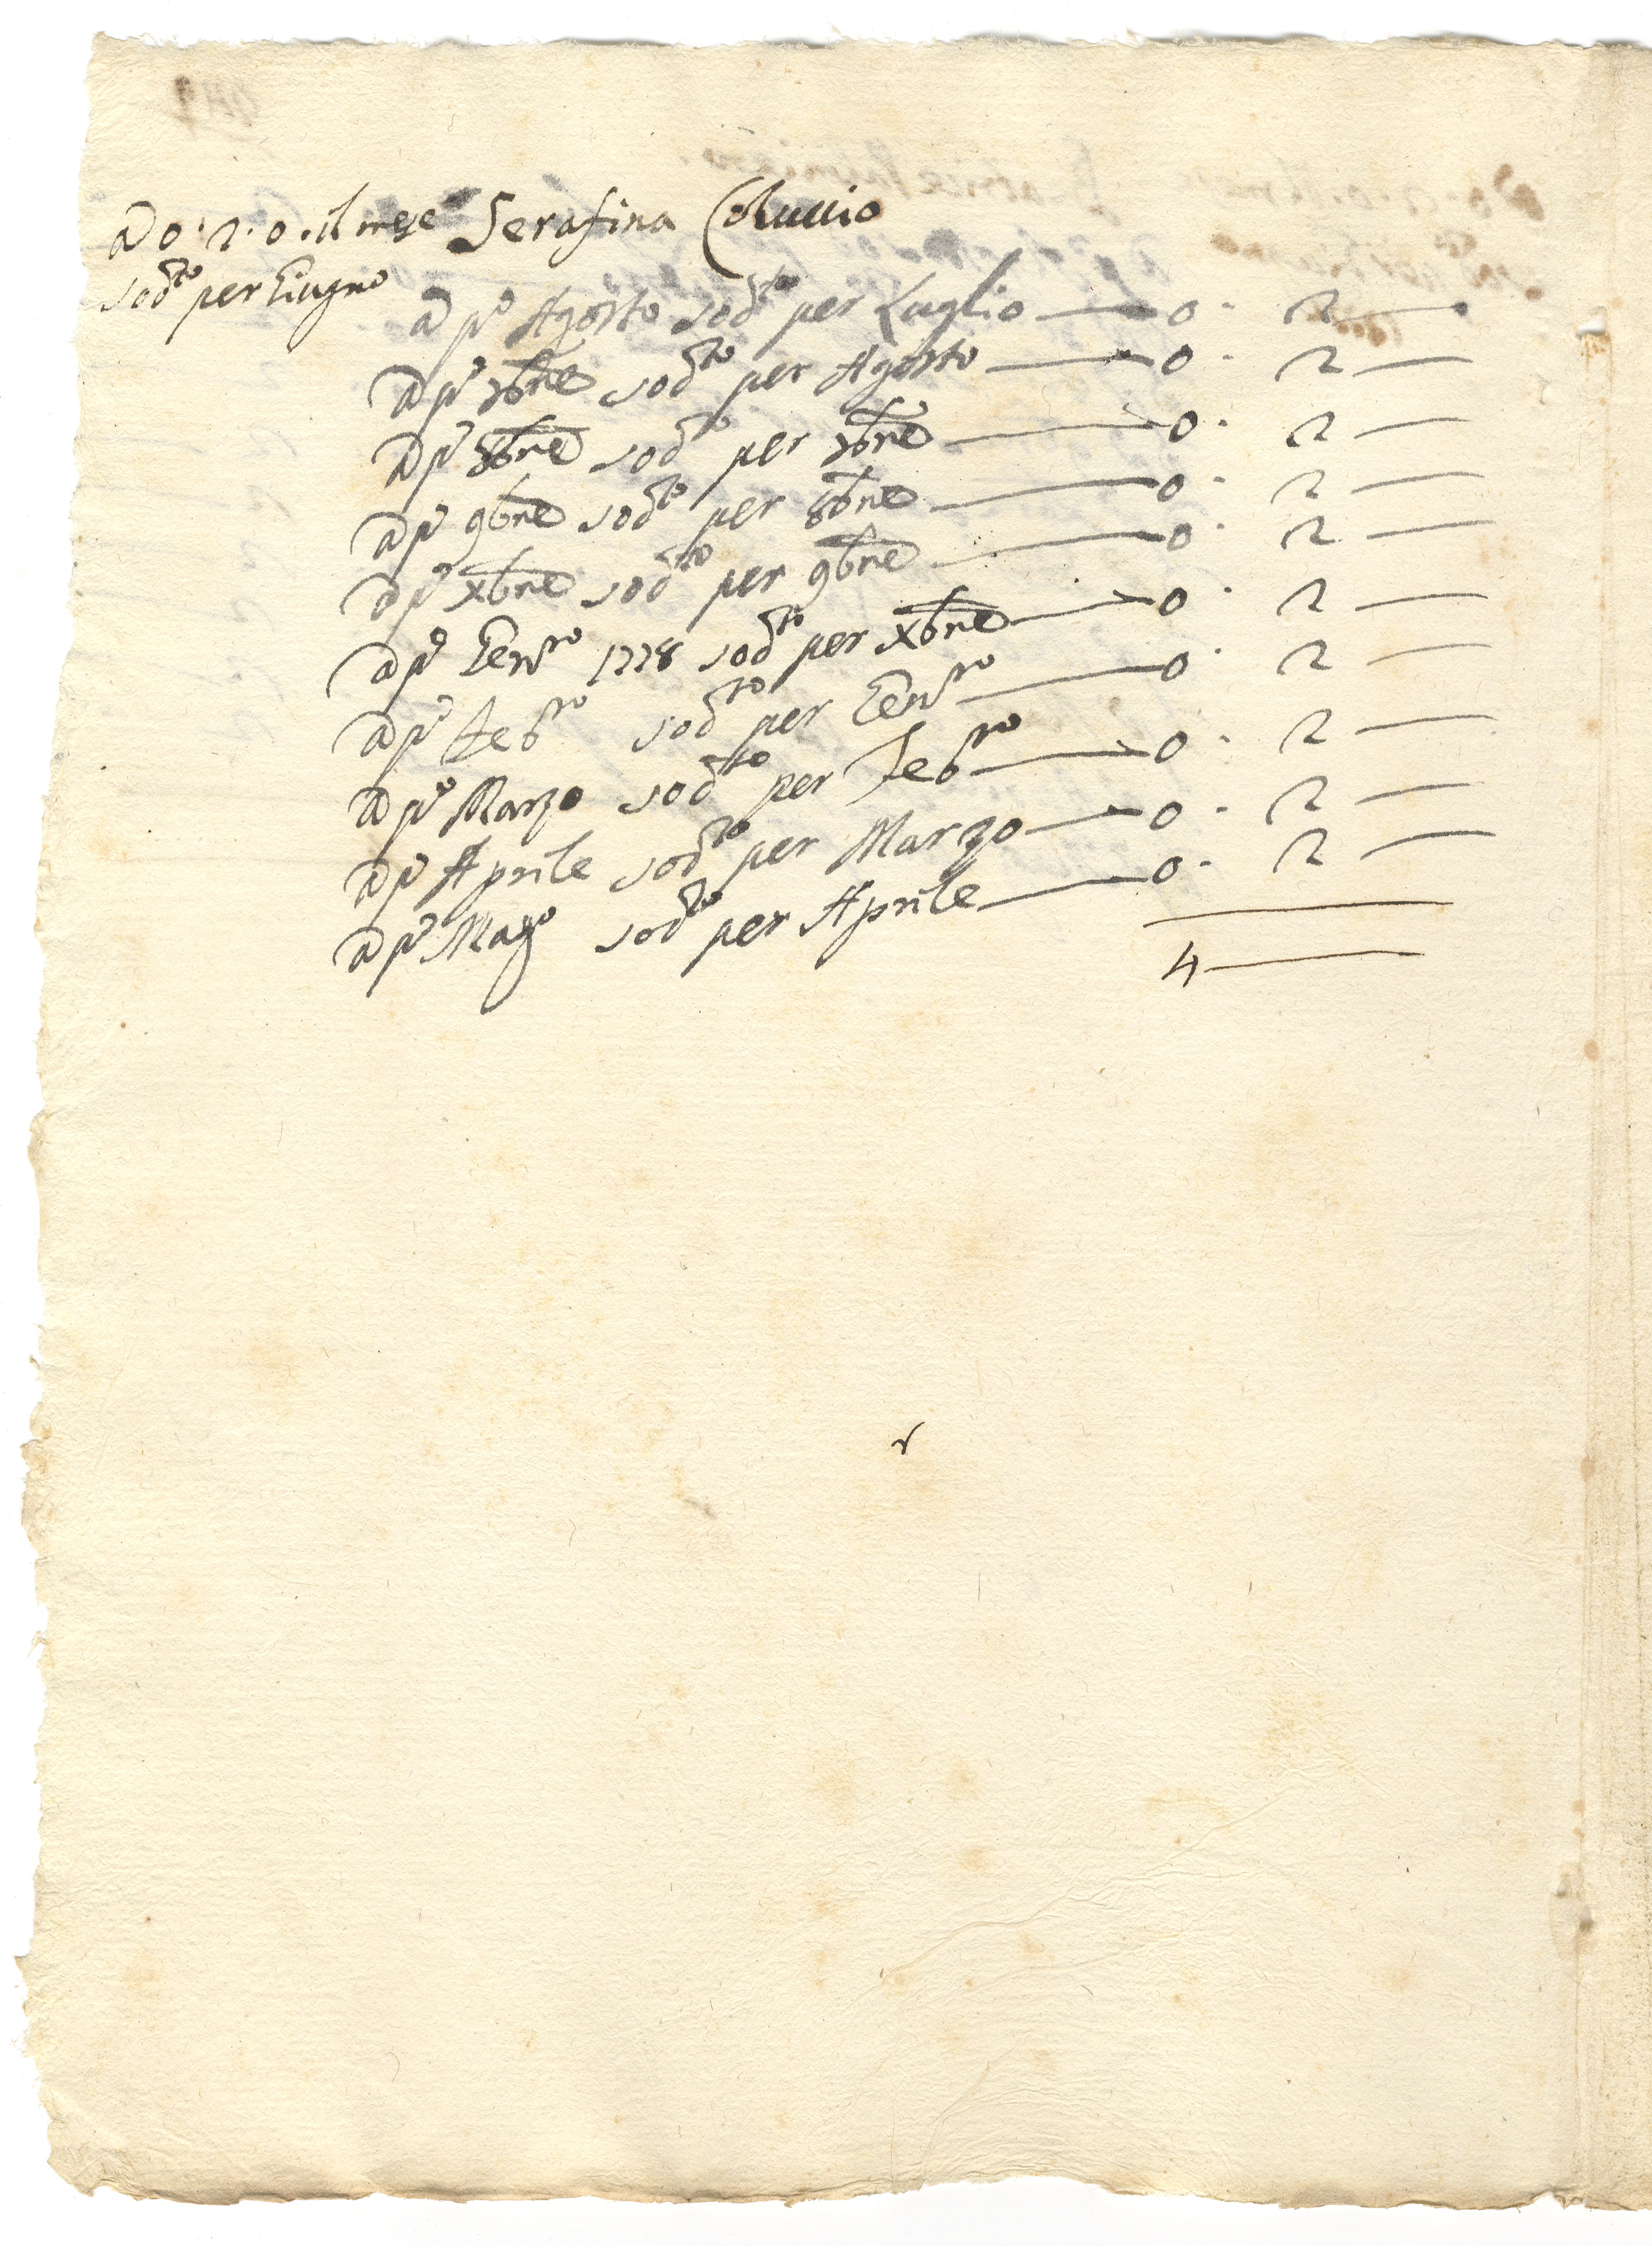 a 0.2.0. il mese Serafina Coluccio
sodto per Giugno
a po Agosto sodto per Luglio — 0. 2 —
a po 7bre sodto per Agosto — 0. 2 —
a po 8bre sodto per 7bre — 0. 2 —
a po 9bre sodto per 8bre — 0. 2 —
a po Xbre sodto per 9bre — 0. 2 —
a po Gennro 1778 sodto per Xbre — 0. 2 —
a po Febro sodto per Gennro — 0. 2 —
a po Marzo sodto per Febro — 0. 2 —
a po Aprile sodto per Marzo — 0. 2 —
a po Mago sodto per Aprile — 0. 2 —
4 —